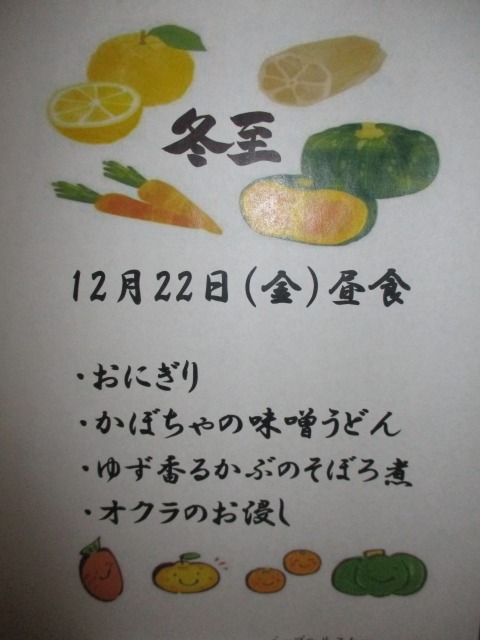 冬至
12月22日(金)昼食
・おにぎり
・かぼちゃの味噌うどん
・ゆず香るかぶのそぼろ煮
・オクラのお浸し